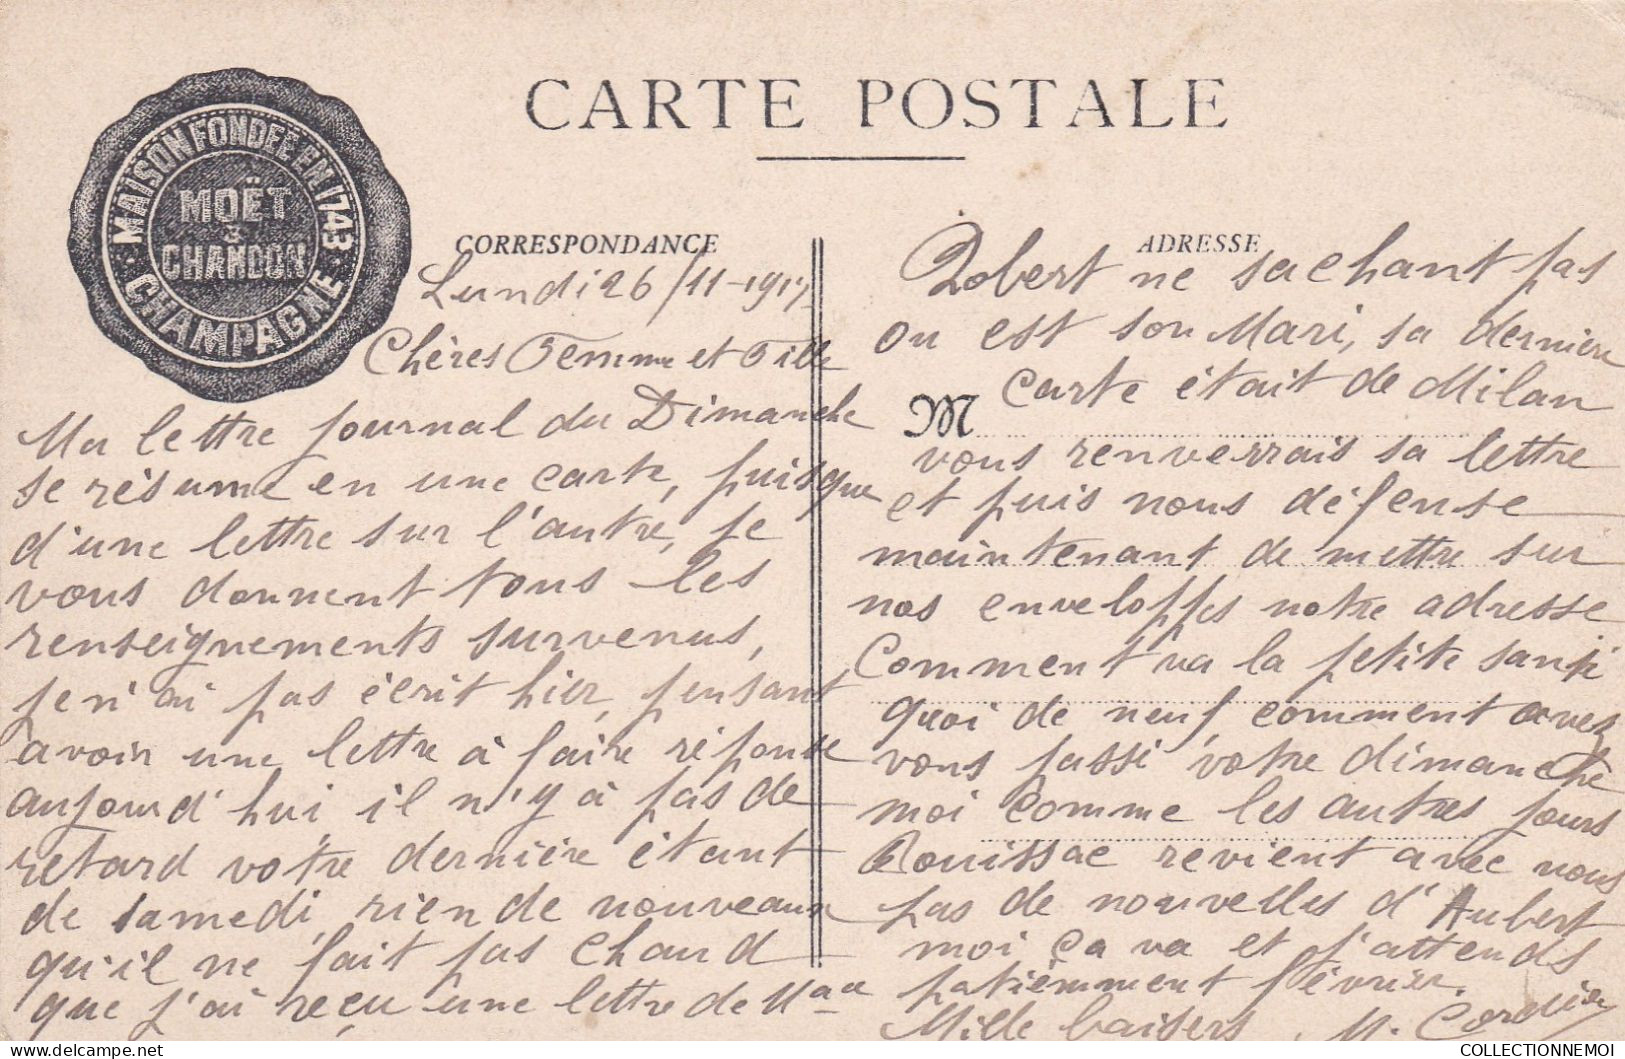 CARTE POSTALE
MAISON FONDÉE EN 1743
MOËT
&
CHANDON
CHAMPAGNE
CORRESPONDANCE
Lundi 26/11-1917
Chères Femme et Fille
Ma lettre journal du Dimanche
se résume en une carte, puisque
d'une lettre sur l'autre, je
vous donnent tous les
renseignements survenus,
je n'ai pas écrit hier, pensant
avoir une lettre à faire réponse
aujourd'hui, il n'y a pas de
retard votre dernière étant
de samedi, rien de nouveaux
qu'il ne fait pas chaud
que j'ai reçu une lettre de
ADRESSE
Robert ne sachant pas
ou est son Mari, sa dernière
carte était de Milan
M
vous renverrais sa lettre
et puis nous défense
maintenant de mettre sur
nos enveloppes notre adresse
Comment va la petite santé
quoi de neuf, comment avez
vous passi votre dimanche
moi comme les autres jours
Bouissac revient avec nous
pas de nouvelles d'Aubert
moi ça va et j'attends
patiemment février.
Mille baisers M. Cordier
COLLECTIONNEMOI